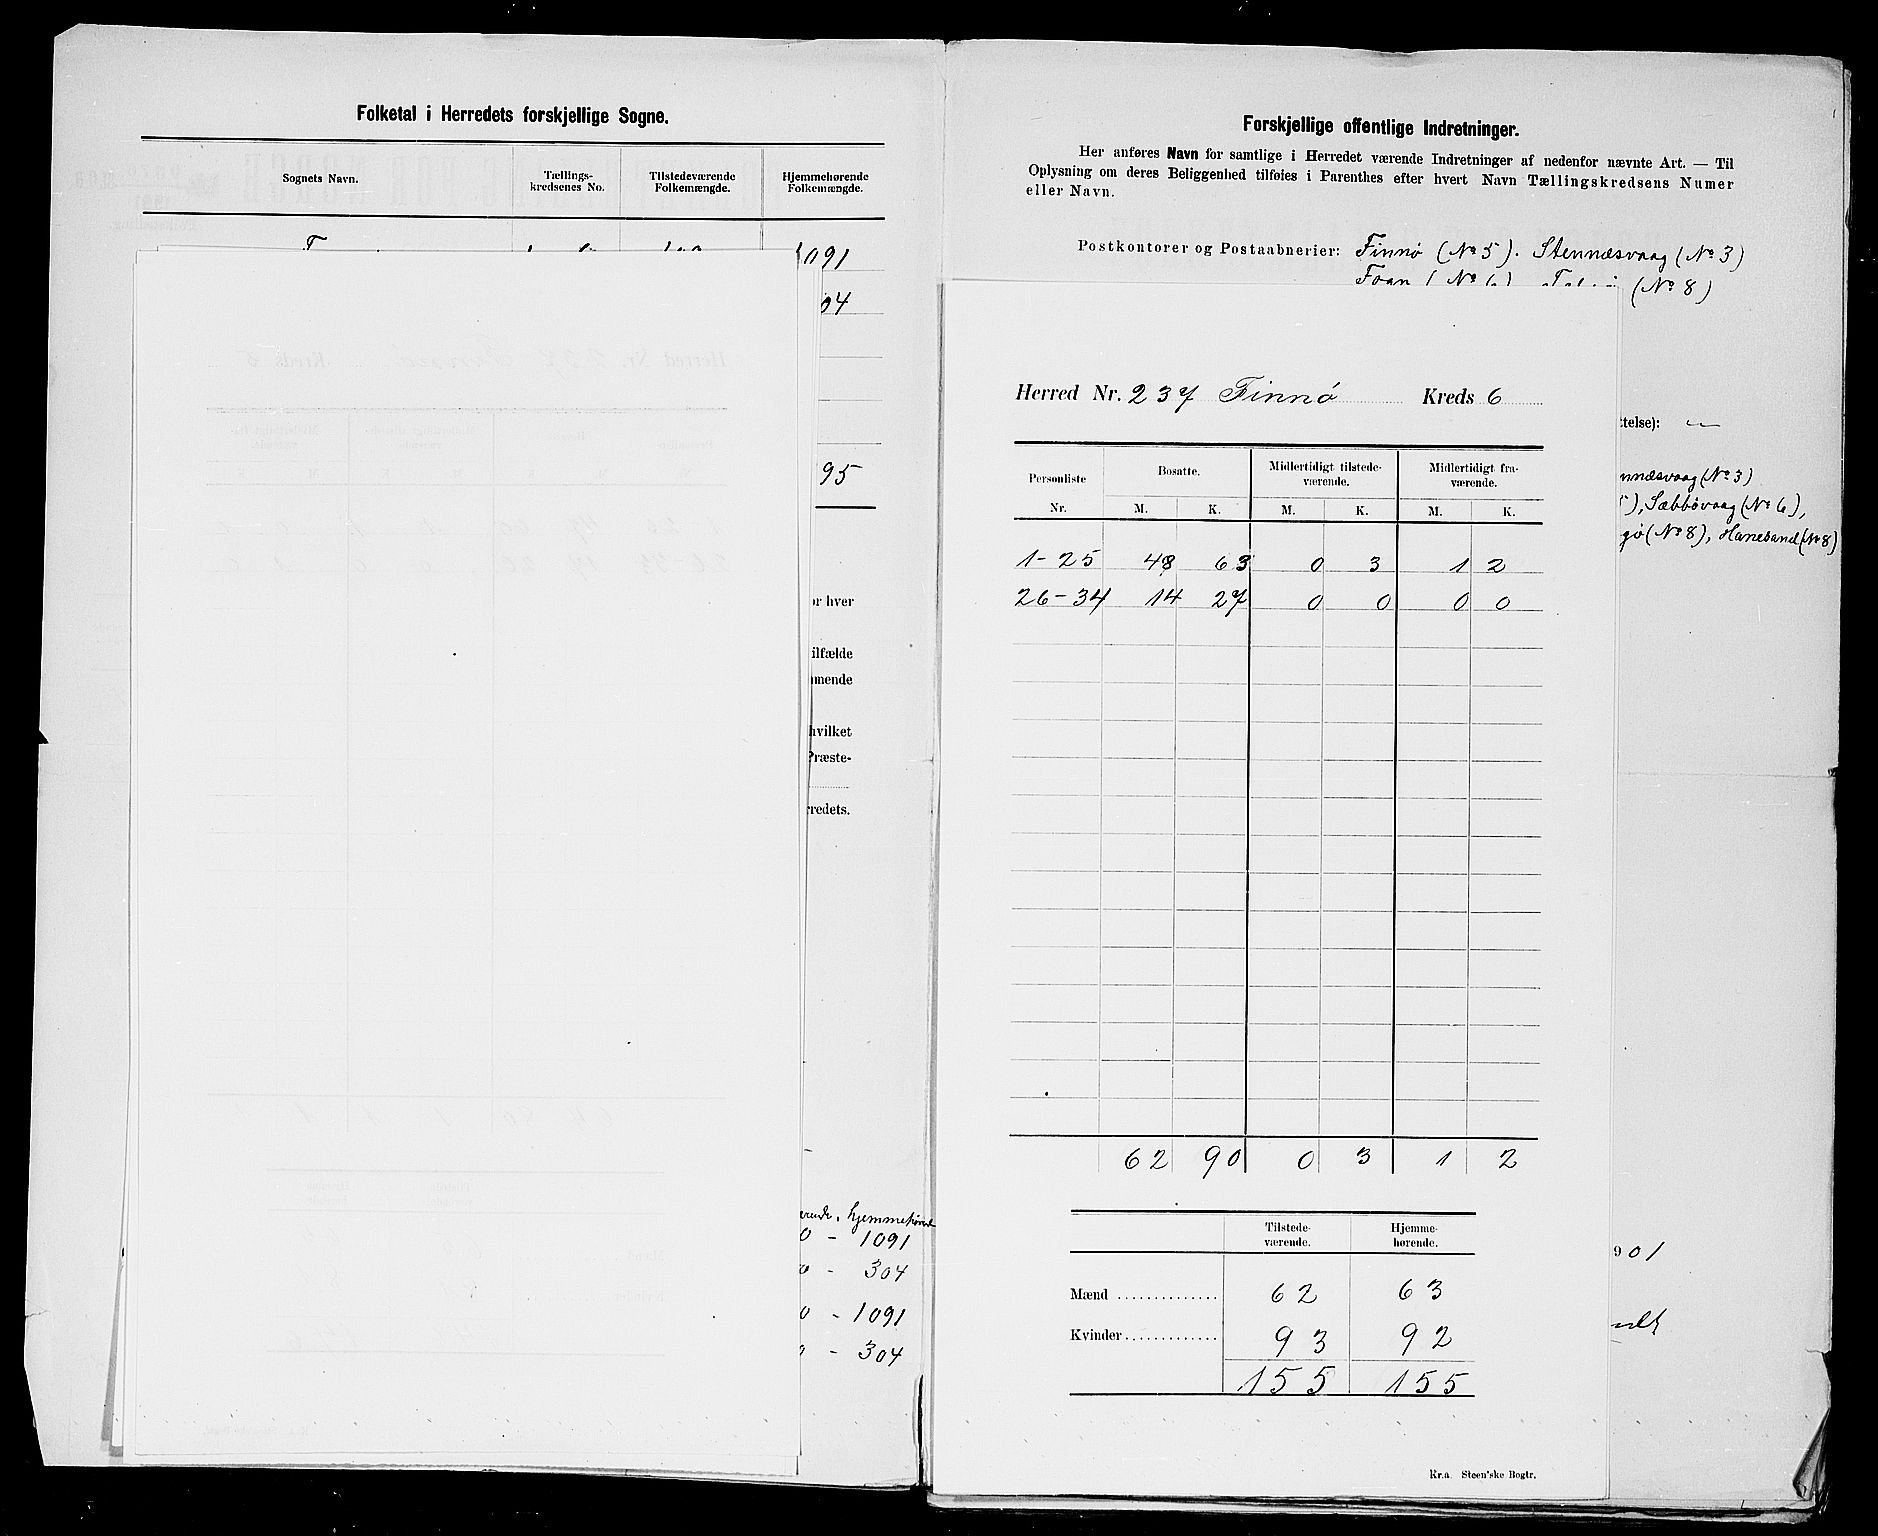 Folketal i Herredets forskjellige Sogne.
Sognets Navn. Tællings- kredsenes No. Tilstedeværende Folkemængde. Hjemmehørende Folkemængde.
1091
04
95
or hver
ilfælde
mende
hvilket
Præste-
rredets.
erende, hjemmehørende
0 - 1091
0 - 304
0 - 1091
0 - 304
Forskjellige offentlige Indretninger.
Her anføres Navn for samtlige i Herredet værende Indretninger af nedenfor nævnte Art. — Til
Oplysning om deres Beliggenhed tilføies i Parenthes efter hvert Navn Tællingskredsens Numer
eller Navn.
Postkontorer og Postaabnerier: Finnø (No 5). Stennæsvaag (No 3)
Foan (No 6) (No 8)
Herred Nr. 237 Finnø Kreds 6
ttelse): —
Personliste Nr. Bosatte. Midlertidigt tilstede- værende. Midlertidigt fra- værende.
M. K. M. K. M. K.
nnæsvaag (No 3)
5), Sæbbøvaag (No 6),
gø (No 8), Hanesand (No 8)
1-25 48 63 0 3 1 2
26-34 14 27 0 0 0 0
62 90 0 3 1 2
Tilstede- værende. Hjemme- hørende.
901
Mænd 62 63
Kvinder 93 92
155 155
Kr.a. Steen'ske Bogtr.